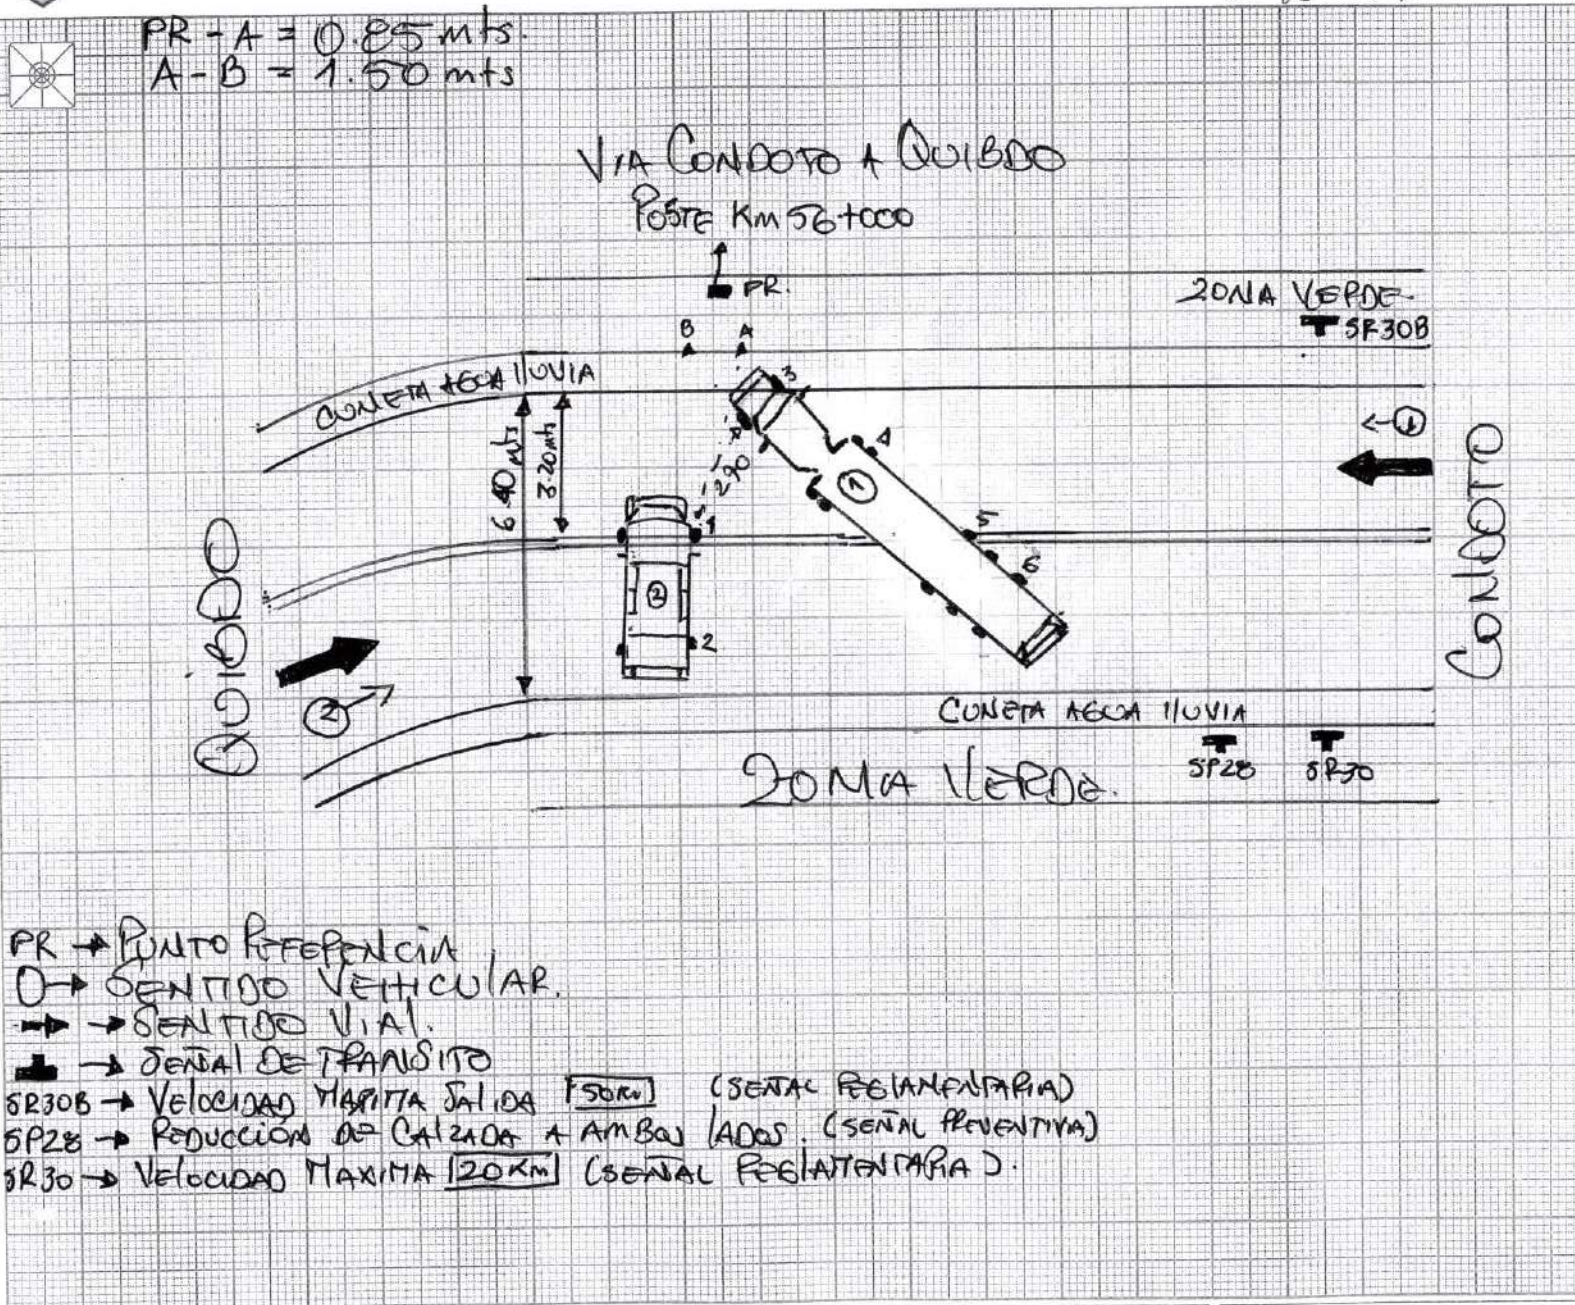 PR - A = 0.85 mts.
A - B = 1.50 mts
VIA CONDOTO A QUIBDO
POSTE Km 56+000
PR.
ZONA VERDE
SR30B
B A
CUNETA AGUA LLUVIA
3
4
1
6.40 mts
3.20 mts
2.90
1
1
5
6
2
2
QUIBDO
CONDOTO
2
CUNETA AGUA LLUVIA
ZONA VERDE.
SP28 SR30
PR → PUNTO REFERENCIA
O → SENTIDO VEHICULAR.
→ SENTIDO VIAL.
→ SEÑAL DE TRANSITO
SR30B → VELOCIDAD MAXIMA SALIDA (SEÑAL REGLAMENTARIA)
SP28 → REDUCCION DE CALZADA A AMBOS LADOS. (SEÑAL PREVENTIVA)
SR30 → VELOCIDAD MAXIMA 20 Km (SEÑAL REGLAMENTARIA).